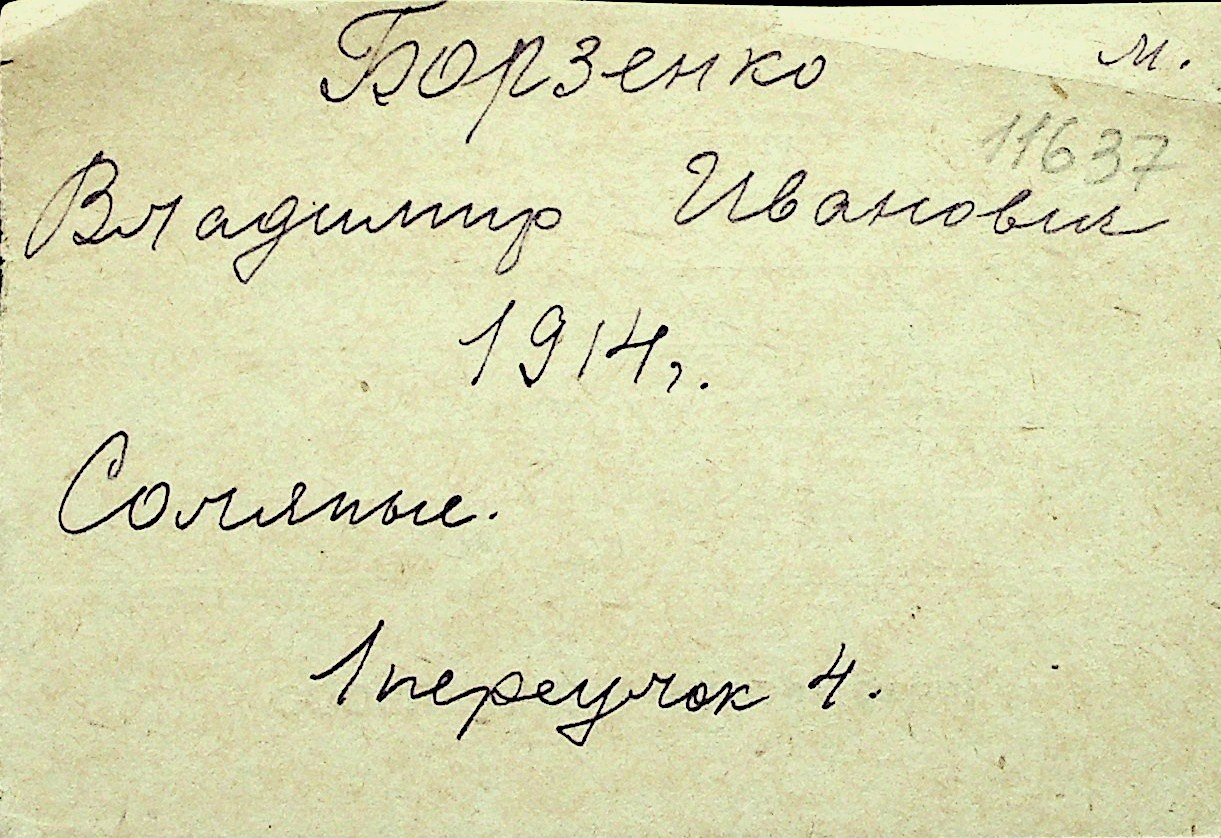 Борзенко м.
11637
Владимир Иванович
1914г.
Соляные.
1 переулок 4.